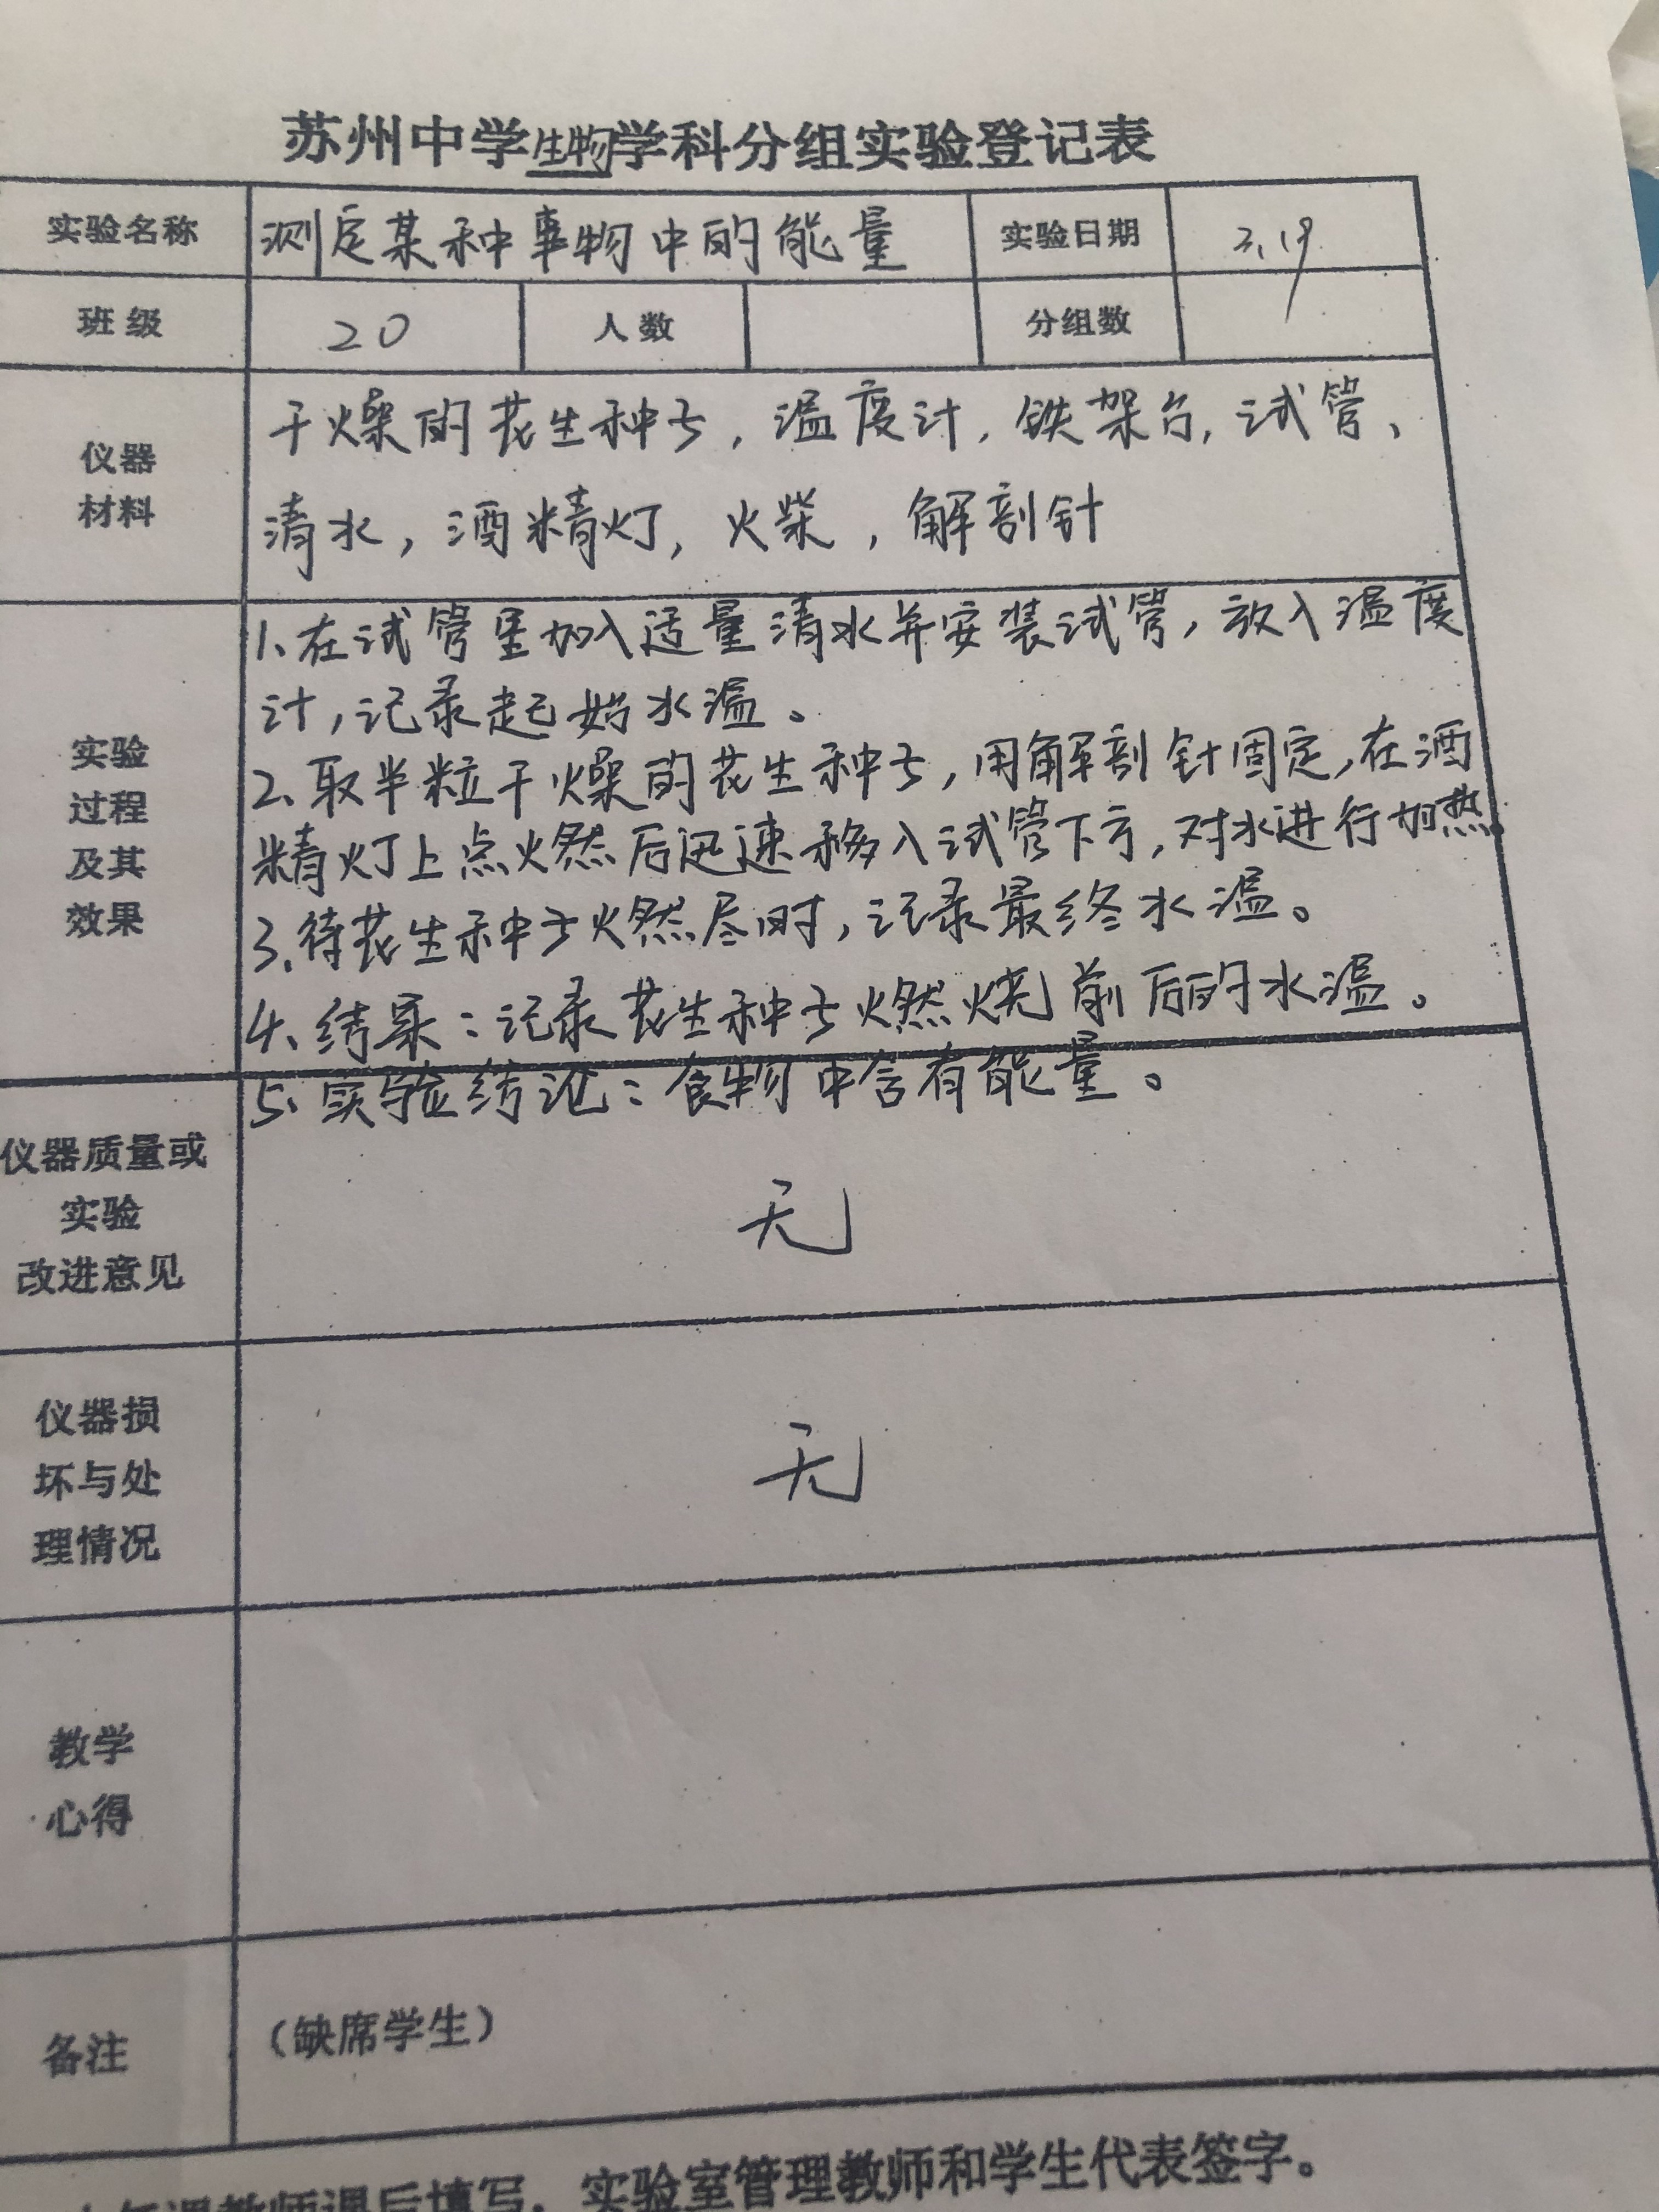 苏州中学生物学科分组实验登记表
实验名称 测定某种事物中的能量 实验日期 3.19
班级 20 人数 分组数
仪器
材料
干燥的花生种子,温度计,铁架台,试管、
清水,酒精灯,火柴,解剖针
实验
过程
及其
效果
1、在试管里加入适量清水并安装试管,放入温度
计,记录起始水温。
2、取半粒干燥的花生种子,用解剖针固定,在酒
精灯上点燃后迅速移入试管下方,对水进行加热。
3、待花生种子燃尽时,记录最终水温。
4、结果:记录花生种子燃烧前后的水温。
5、实验结论:食物中含有能量。
仪器质量或
实验
改进意见
无
仪器损
坏与处
理情况
无
教学
心得
备注
(缺席学生)
任课教师课后填写,实验室管理教师和学生代表签字。